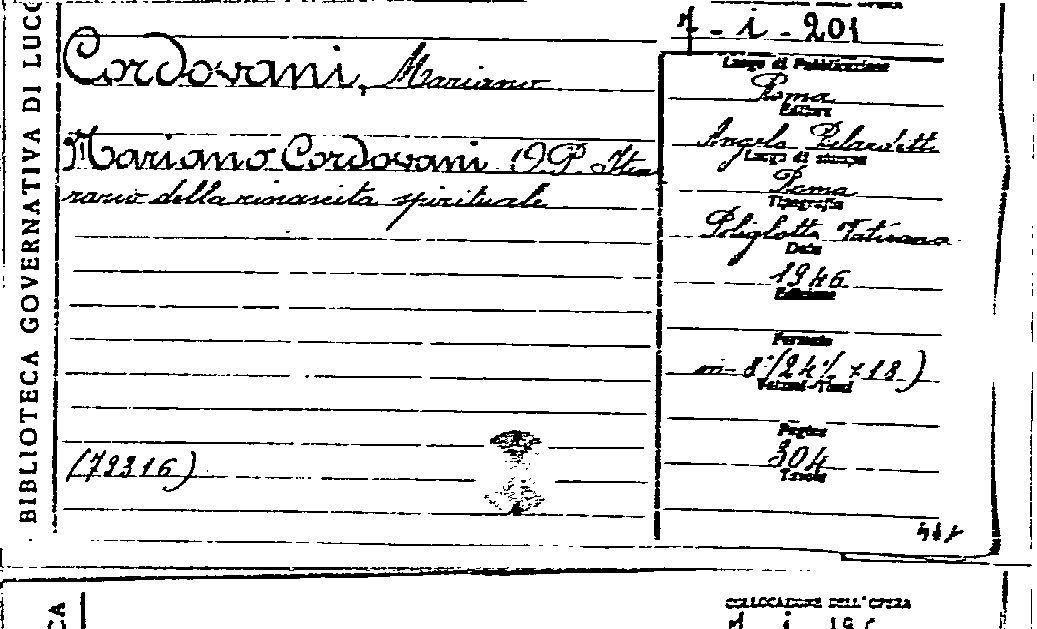 BIBLIOTECA GOVERNATIVA DI LUCC
7 - i - 201
Cordovani, Mariano
Mariano Cordovani O.P. Itine
rario della rinascita spirituale
(79316)
Luogo di Pubblicazione
Roma
Editore
Angelo Belardetti
Luogo di stampa
Roma
Tipografia
Poliglotta Vaticana
Data
1946
Edizione
Formato
in-8°(24½ x18)
Volumi-Tomi
Pagine
304
Tavole
COLLOCAZIONE DELL'OPERA